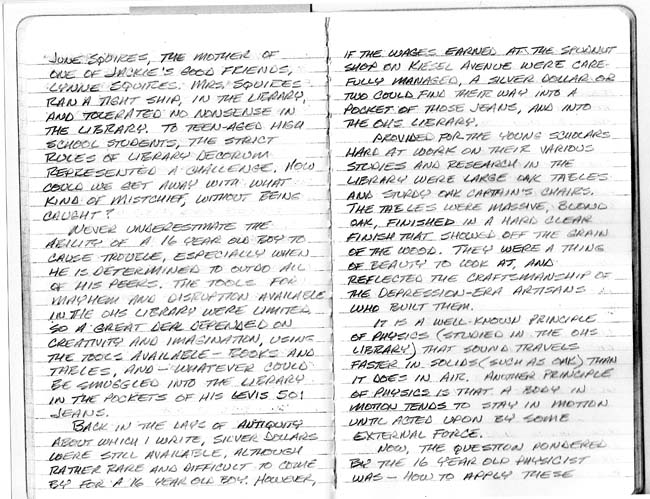 JUNE SQUIRES, THE MOTHER OF
ONE OF JACKIE'S GOOD FRIENDS,
LYNNE SQUIRES. MRS. SQUIRES
RAN A TIGHT SHIP, IN THE LIBRARY,
AND TOLERATED NO NONSENSE IN
THE LIBRARY. TO TEEN-AGED HIGH
SCHOOL STUDENTS, THE STRICT
RULES OF LIBRARY DECORUM
REPRESENTED A CHALLENGE. HOW
COULD WE GET AWAY WITH WHAT
KIND OF MISTCHIEF, WITHOUT BEING
CAUGHT?
NEVER UNDERESTIMATE THE
ABILITY OF A 16 YEAR OLD BOY TO
CAUSE TROUBLE, ESPECIALLY WHEN
HE IS DETERMINED TO OUTDO ALL
OF HIS PEERS. THE TOOLS FOR
MAYHEM AND DISRUPTION AVAILABLE
IN THE OHS LIBRARY WERE LIMITED.
SO A GREAT DEAL DEPENDED ON
CREATIVITY AND IMAGINATION, USING
THE TOOLS AVAILABLE - BOOKS AND
TABLES, AND - WHATEVER COULD
BE SMUGGLED INTO THE LIBRARY
IN THE POCKETS OF HIS LEVIS 501
JEANS.
BACK IN THE DAYS OF ANTIQUITY
ABOUT WHICH I WRITE, SILVER DOLLARS
WERE STILL AVAILABLE, ALTHOUGH
RATHER RARE AND DIFFICULT TO COME
BY FOR A 16 YEAR OLD BOY. HOWEVER,
IF THE WAGES EARNED AT THE SPUDNUT
SHOP ON KIESEL AVENUE WERE CARE-
FULLY MANAGED, A SILVER DOLLAR OR
TWO COULD FIND THEIR WAY INTO A
POCKET OF THOSE JEANS, AND INTO
THE OHS LIBRARY.
PROVIDED FOR THE YOUNG SCHOLARS
HARD AT WORK ON THEIR VARIOUS
STUDIES AND RESEARCH IN THE
LIBRARY WERE LARGE OAK TABLES
AND STURDY OAK CAPTAIN'S CHAIRS.
THE TABLES WERE MASSIVE, BLOND
OAK, FINISHED IN A HARD CLEAR
FINISH THAT SHOWED OFF THE GRAIN
OF THE WOOD. THEY WERE A THING
OF BEAUTY TO LOOK AT, AND
REFLECTED THE CRAFTSMANSHIP OF
THE DEPRESSION-ERA ARTISANS
WHO BUILT THEM.
IT IS A WELL-KNOWN PRINCIPLE
OF PHYSICS (STUDIED IN THE OHS
LIBRARY) THAT SOUND TRAVELS
FASTER IN SOLIDS (SUCH AS OAK) THAN
IT DOES IN AIR. ANOTHER PRINCIPLE
OF PHYSICS IS THAT A BODY IN
MOTION TENDS TO STAY IN MOTION
UNTIL ACTED UPON BY SOME
EXTERNAL FORCE.
NOW, THE QUESTION PONDERED
BY THE 16 YEAR OLD PHYSICIST
WAS - HOW TO APPLY THESE